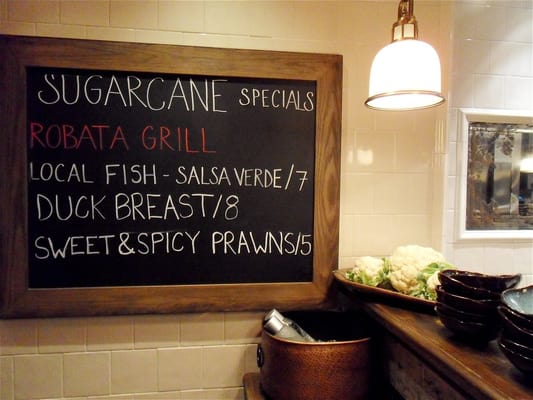 SUGARCANE SPECIALS
ROBATA GRILL
LOCAL FISH - SALSA VERDE/7
DUCK BREAST/8
SWEET & SPICY PRAWNS/5